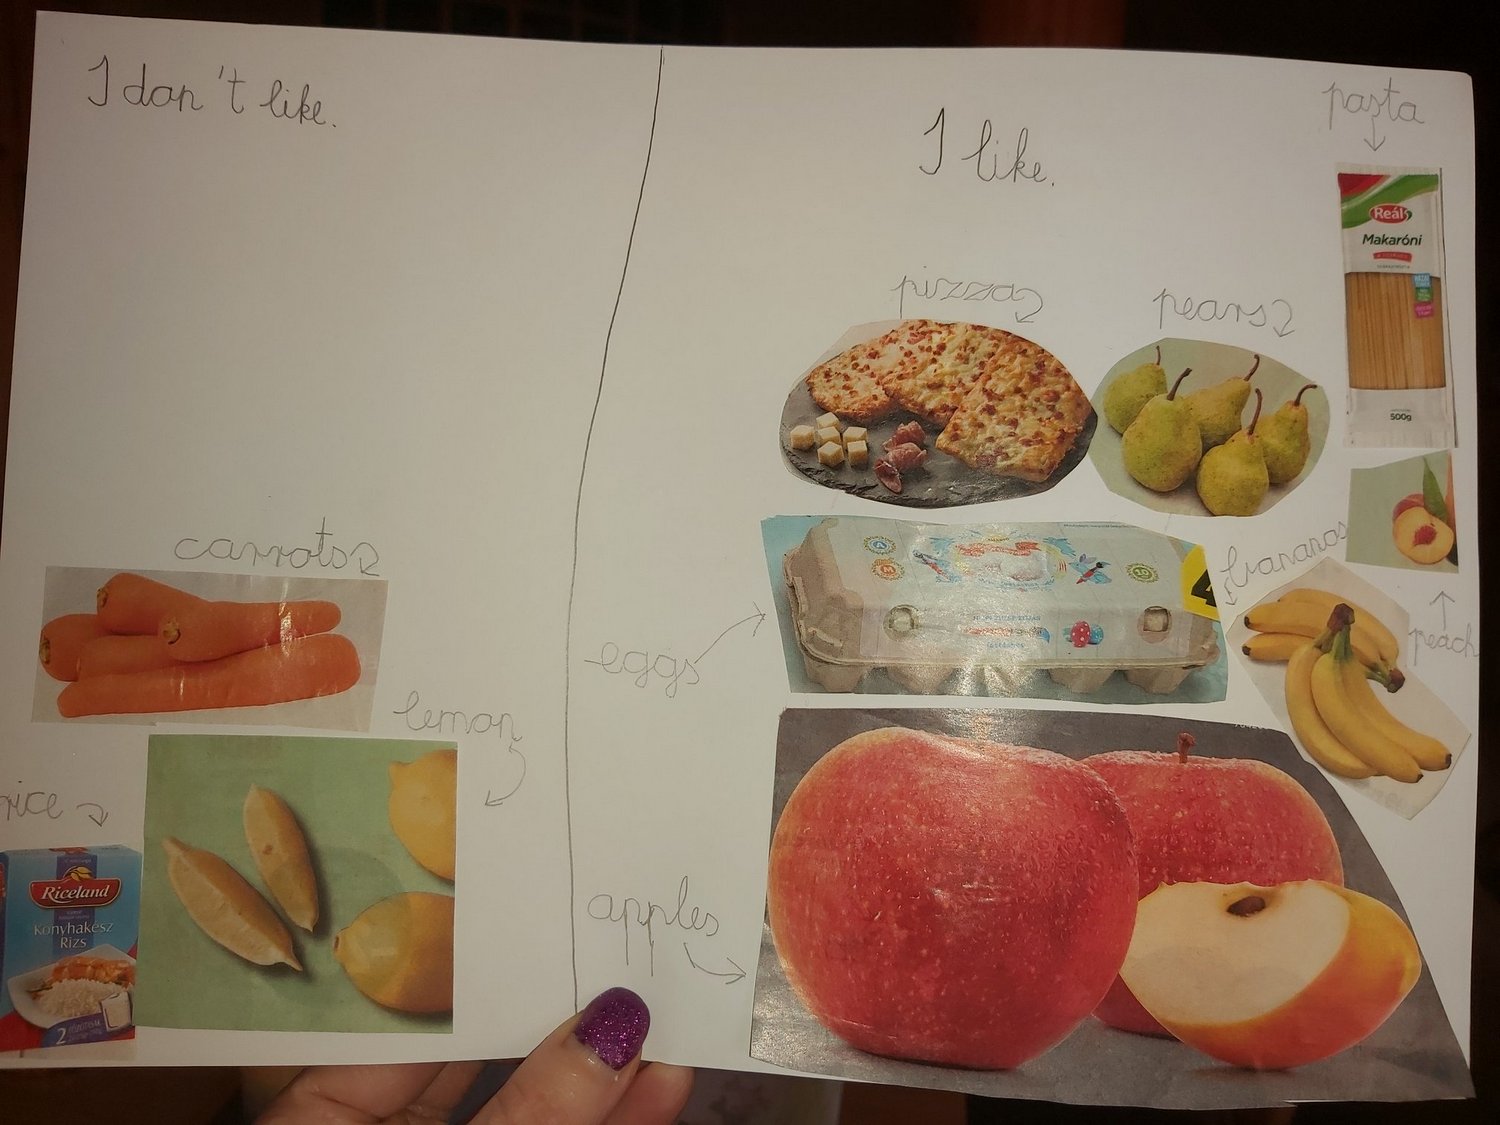 I don't like.
carrots
lemon
rice
Riceland
Konyhakész
Rizs
2
I like.
pasta
Reál
Makaróni
500g
pizza
pears
bananas
peach
eggs
A
M
10
4
apples